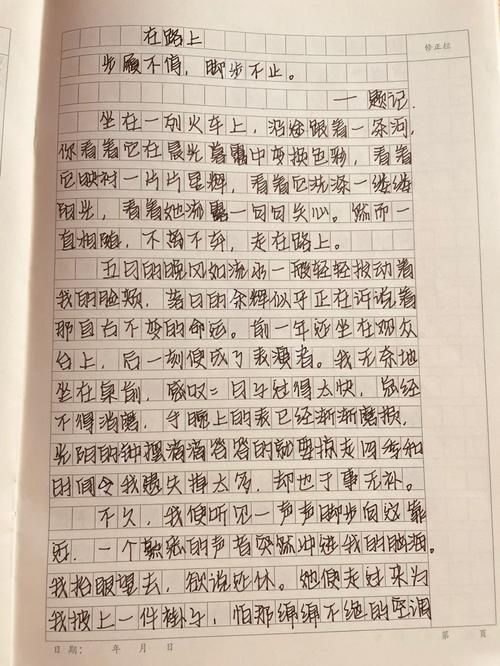 在路上
修正栏
步履不停，脚步不止。
——题记.
坐在一列火车上，沿途跟着一条河，
你看着它在晨光暮霭中变换色彩，看着
它映衬一片片星辉，看着它洗涤一缕缕
阳光，看着她流露一句句关心。然而一
直相随，不离不弃，走在路上。
五月的晚风如流水一般轻轻拨动着
我的脸颊，落日的余晖似乎正在诉说着
那自古不变的命运。前一年还坐在观众
台上，后一刻便成了表演者。我无奈地
坐在桌前，感叹：日子过得太快，总经
不得消磨，手腕上的表已经渐渐磨损，
光阴的钟摆滴滴答答的就要掠走四季和
的间令我遗失掉太多，却也于事无补。
不久，我便听见一声声脚步向这靠
近，一个熟悉的声音突然冲进我的脑海。
我抬眼望去，欲说还休。她便走过来为
我披上一件褂子，怕那绵绵不绝的空调
日期： 年 月 日
第 頁